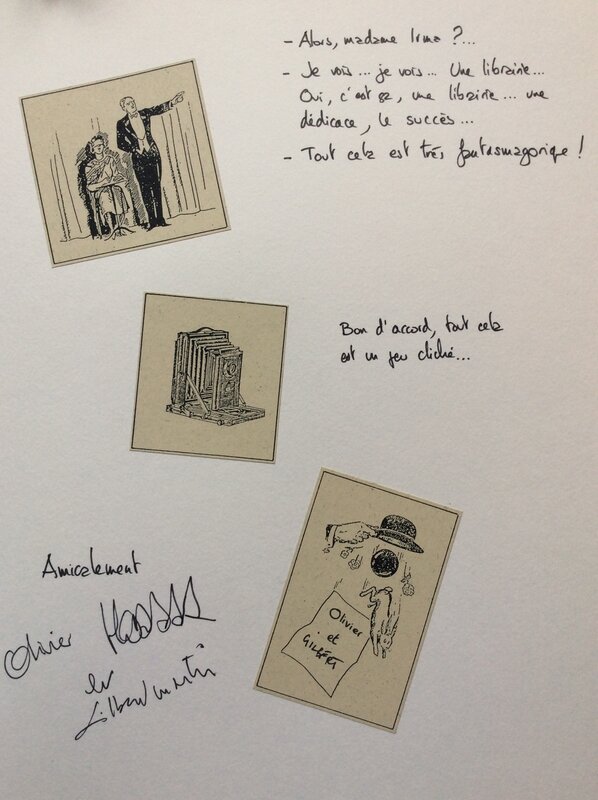 - Alors, madame Irma ?...
- Je vois... je vois... Une librairie...
Oui, c'est ça, une librairie... une
dédicace, le succès...
- Tout cela est très fantasmagorique !
Bon d'accord, tout cela
est un peu cliché...
Olivier
et
GILBERT
Amicalement
Olivier
et
Gilbert